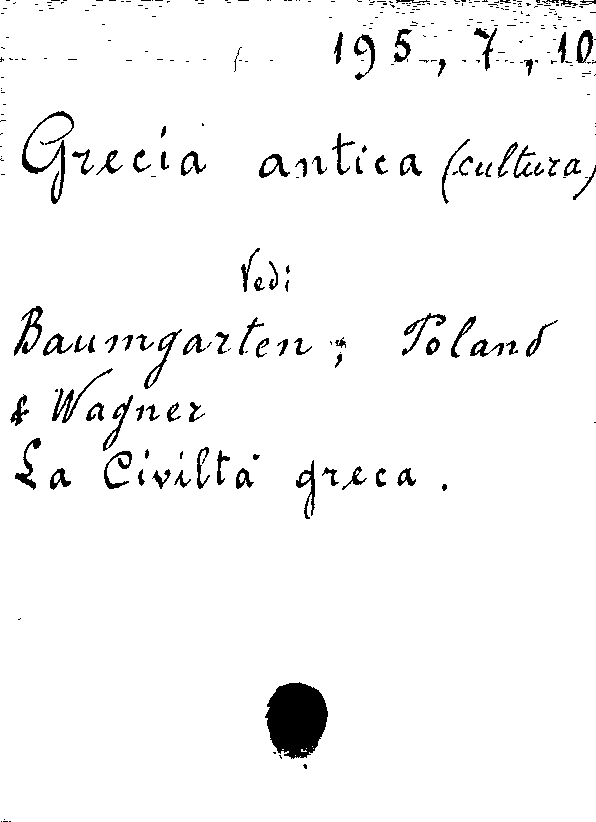 195, 7, 10
Grecia antica (cultura)
Vedi
Baumgarten, Poland
& Wagner
La Civiltà greca.